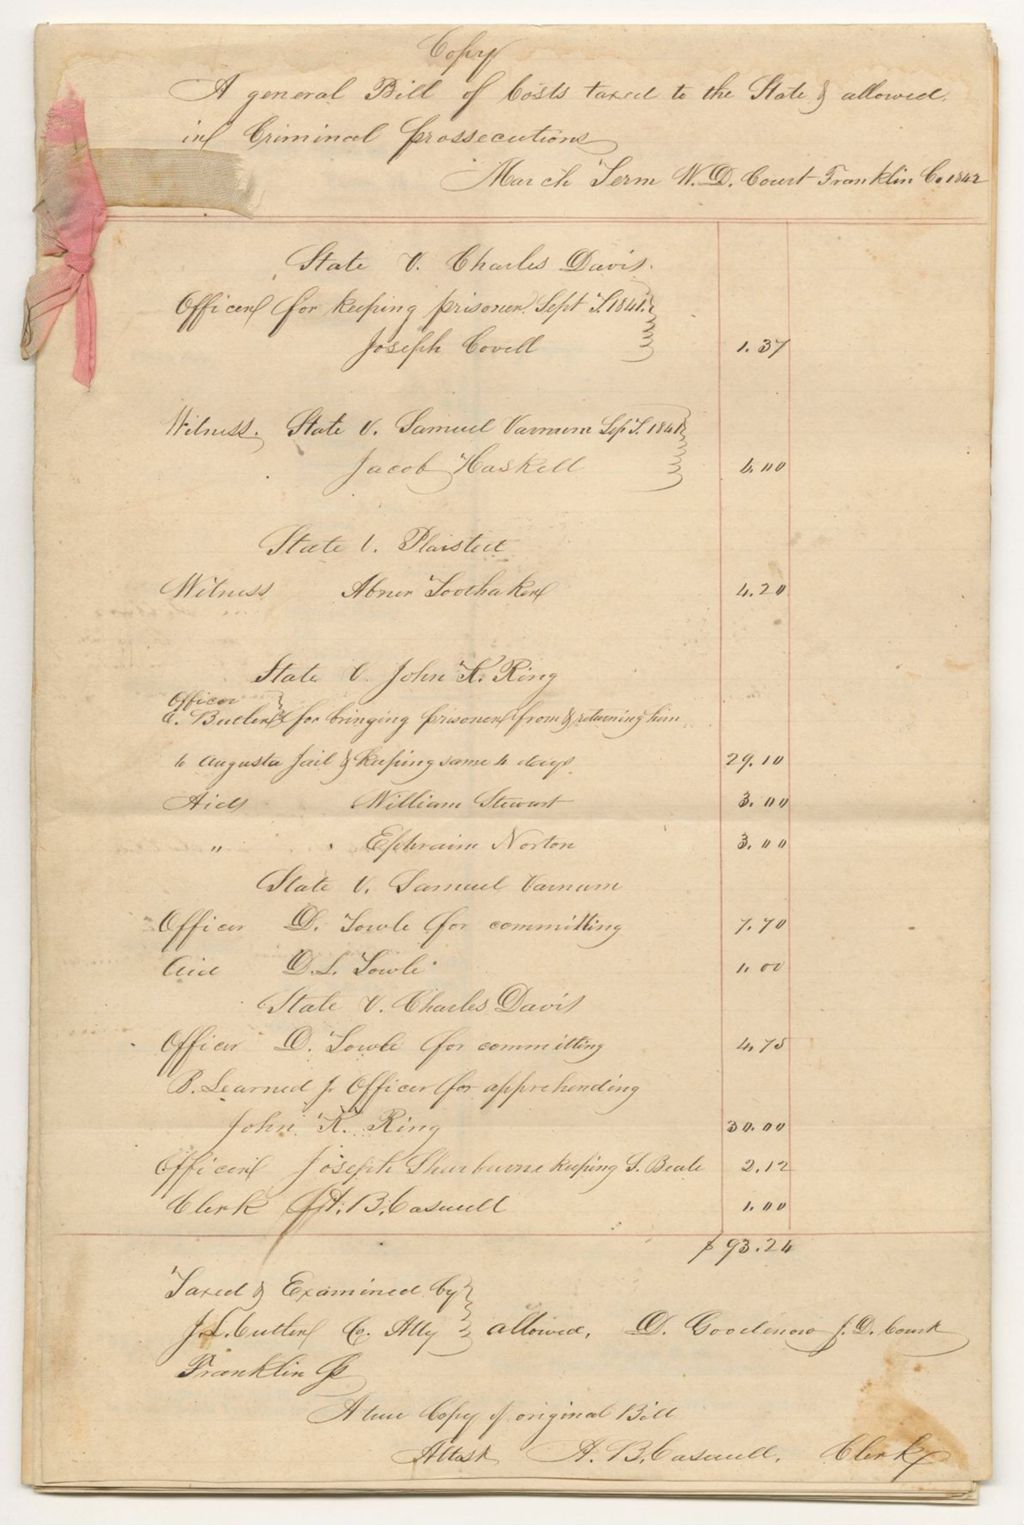 Copy
A general Bill of Costs taxed to the State & allowed
in Criminal prossecutions
March Term W. D. Court Franklin Co. 1842
State V. Charles Davis.
Officer for keeping prisoner Sept T. 1841.
Joseph Covell 1.37
Witness. State V. Samuel Varnum Sep T. 1841
Jacob Haskell 6.00
State V. Plaisted
Witness Abner Toothaker 4.20
State V. John K. Ring
Officer
Butler for bringing prisoner from & returning him
to Augusta Jail & keeping same 4 days. 29.10
Aids William Stewart 3.00
" Ephraim Norton 3.00
State V. Samuel Varnum
Officer D. Towle for committing 7.70
Aid D. L. Towle 1.00
State V. Charles Davis
Officer D. Towle for committing 4.75
B. Learned Jr Officer for apprehending
John K. Ring 30.00
Officer Joseph Sherburne keeping S. Beale 2.12
Clerk A. B. Caswell 1.00
$ 93.24
Taxed & Examined by
J. L. Cutler Co. Atty allowed, D. Goodenow J. D. Court
Franklin Ss
A true Copy of original Bill
Attest A. B. Caswell, Clerk